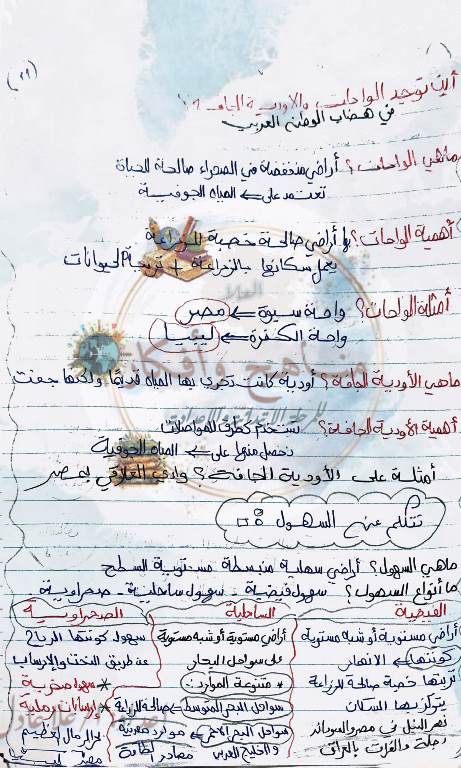 (١١)
أين توجد الواحات والأودية الجافة؟
في هضاب الوطن العربي
ماهي الواحات؟ أراضي منخفضة في الصحراء صالحة للحياة
تعتمد على ← المياه الجوفية
أهمية الواحات؟ بها أراضي صالحة خصبة للزراعة
يعمل سكانها بالزراعة + تربية الحيوانات
أمثلة الواحات؟ واحة سيوة ← مصر
واحة الكفرة ← ليبيا
ماهي الأودية الجافة؟ أودية كانت تجري بها المياه قديمًا ولكنها جفت
أهمية الأودية الجافة؟ تستخدم كطرق للمواصلات
نحصل منها على ← المياه الجوفية
أمثلة على الأودية الجافة؟ وادي العلاقي بمصر
نتكلم عن السهول
ماهي السهول؟ أراضي سهلية منبسطة مستوية السطح
ما أنواع السهول؟ سهول فيضية - سهول ساحلية - صحراوية
الفيضية
أراضي مستوية أو شبه مستوية
كونتها ← الانهار
تربتها خصبة صالحة للزراعة
يتركز بها السكان
نهر النيل في مصر والسودان
دجلة والفرات بالعراق
الساحلية
أراضي مستوية أو شبه مستوية
على سواحل البحار
* متنوعة الموارد:
سواحل البحر المتوسط ← صالحة للزراعة
سواحل البحر الاحمر ← موارد معدنية
والخليج العربي
مصادر الطاقة
الصحراوية
سهول كونتها الرياح
عن طريق النحت والإرساب
* سهول صخرية
* إرسابات رملية
بحر الرمال العظيم
مصر ليبيا
مناهج وأفكار